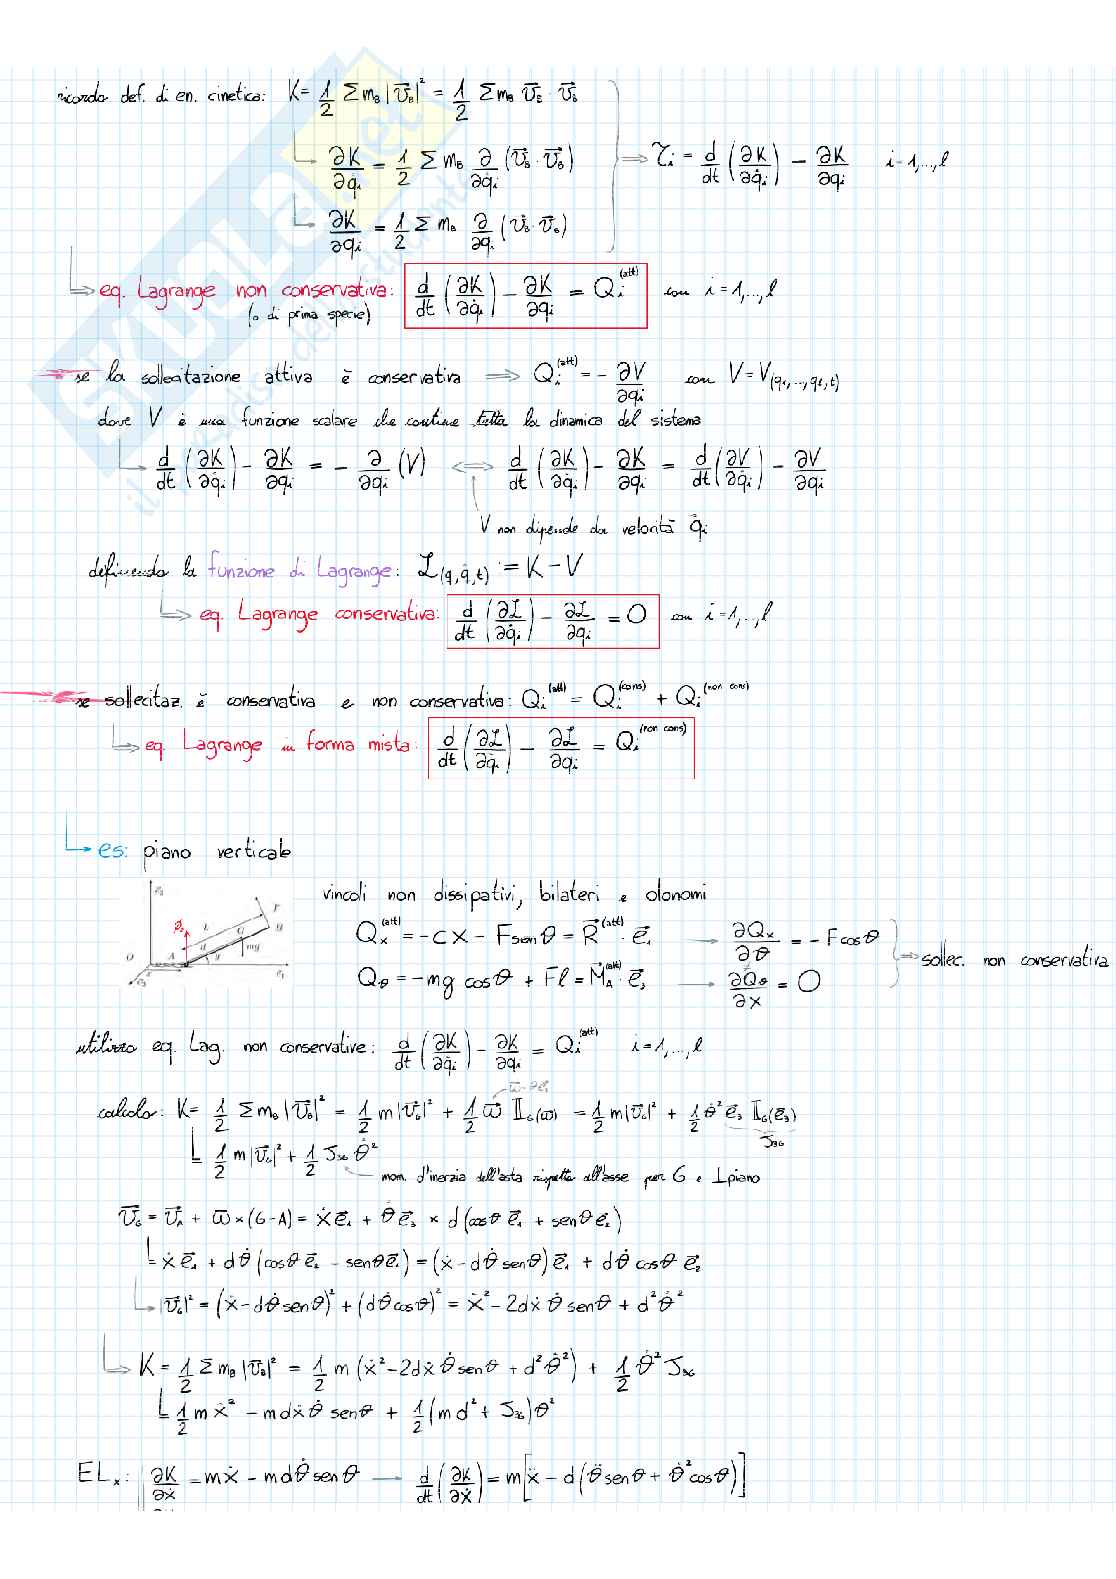 ricordo def. di en. cinetica: K = 1/2 Σ m_B |v⃗_B|² = 1/2 Σ m_B v⃗_B · v⃗_B
∂K/∂q̇i = 1/2 Σ m_B ∂/∂q̇i (v⃗_B · v⃗_B) ⟹ τi = d/dt (∂K/∂q̇i) − ∂K/∂qi i = 1,...,l
∂K/∂qi = 1/2 Σ m_B ∂/∂qi (v⃗_B · v⃗_B)
eq. Lagrange non conservativa: d/dt (∂K/∂q̇i) − ∂K/∂qi = Qi^(att) con i = 1,...,l
(o di prima specie)
se la sollecitazione attiva è conservativa ⟹ Qi^(att) = − ∂V/∂qi con V = V(q1,...,ql,t)
dove V è una funzione scalare che contiene tutta la dinamica del sistema
d/dt (∂K/∂q̇i) − ∂K/∂qi = − ∂/∂qi (V) ⟺ d/dt (∂K/∂q̇i) − ∂K/∂qi = d/dt (∂V/∂q̇i) − ∂V/∂qi
V non dipende da velocità q̇i
definendo la funzione di Lagrange: L(q,q̇,t) := K − V
eq. Lagrange conservativa: d/dt (∂L/∂q̇i) − ∂L/∂qi = 0 con i = 1,...,l
se sollecitaz. è conservativa e non conservativa: Qi^(att) = Qi^(cons) + Qi^(non cons)
eq. Lagrange in forma mista: d/dt (∂L/∂q̇i) − ∂L/∂qi = Qi^(non cons)
es: piano verticale
vincoli non dissipativi, bilateri e olonomi
Qx^(att) = −cx − F senθ = R⃗^(att) · e⃗1 → ∂Qx/∂θ = −F cosθ
sollec. non conservativa
Qθ = −mg cosθ + Fl = M⃗_A^(att) · e⃗3 → ∂Qθ/∂x = 0
e2 F L B G d mg O A θ e1 e3
utilizzo eq. Lag. non conservative: d/dt (∂K/∂q̇i) − ∂K/∂qi = Qi^(att) i = 1,...,l
ω⃗ = θ̇e⃗3
calcolo: K = 1/2 Σ m_B |v⃗_B|² = 1/2 m|v⃗_G|² + 1/2 ω⃗ · 𝕀_G(ω⃗) = 1/2 m|v⃗_G|² + 1/2 θ̇² e⃗3 · 𝕀_G(e⃗3)
J3G
1/2 m|v⃗_G|² + 1/2 J3G θ̇²
mom. d'inerzia dell'asta rispetto all'asse per G e ⊥ piano
v⃗_G = v⃗_A + ω⃗ × (G−A) = ẋ e⃗1 + θ̇ e⃗3 × d(cosθ e⃗1 + senθ e⃗2)
= ẋ e⃗1 + dθ̇ (cosθ e⃗2 − senθ e⃗1) = (ẋ − dθ̇ senθ) e⃗1 + dθ̇ cosθ e⃗2
|v⃗_G|² = (ẋ − dθ̇ senθ)² + (dθ̇ cosθ)² = ẋ² − 2dẋ θ̇ senθ + d² θ̇²
K = 1/2 Σ m_B |v⃗_B|² = 1/2 m (ẋ² − 2dẋ θ̇ senθ + d² θ̇²) + 1/2 θ̇² J3G
1/2 m ẋ² − mdẋθ̇ senθ + 1/2 (md² + J3G) θ̇²
ELx: ∂K/∂ẋ = mẋ − mdθ̇ senθ → d/dt (∂K/∂ẋ) = m[ẍ − d(θ̈ senθ + θ̇² cosθ)]